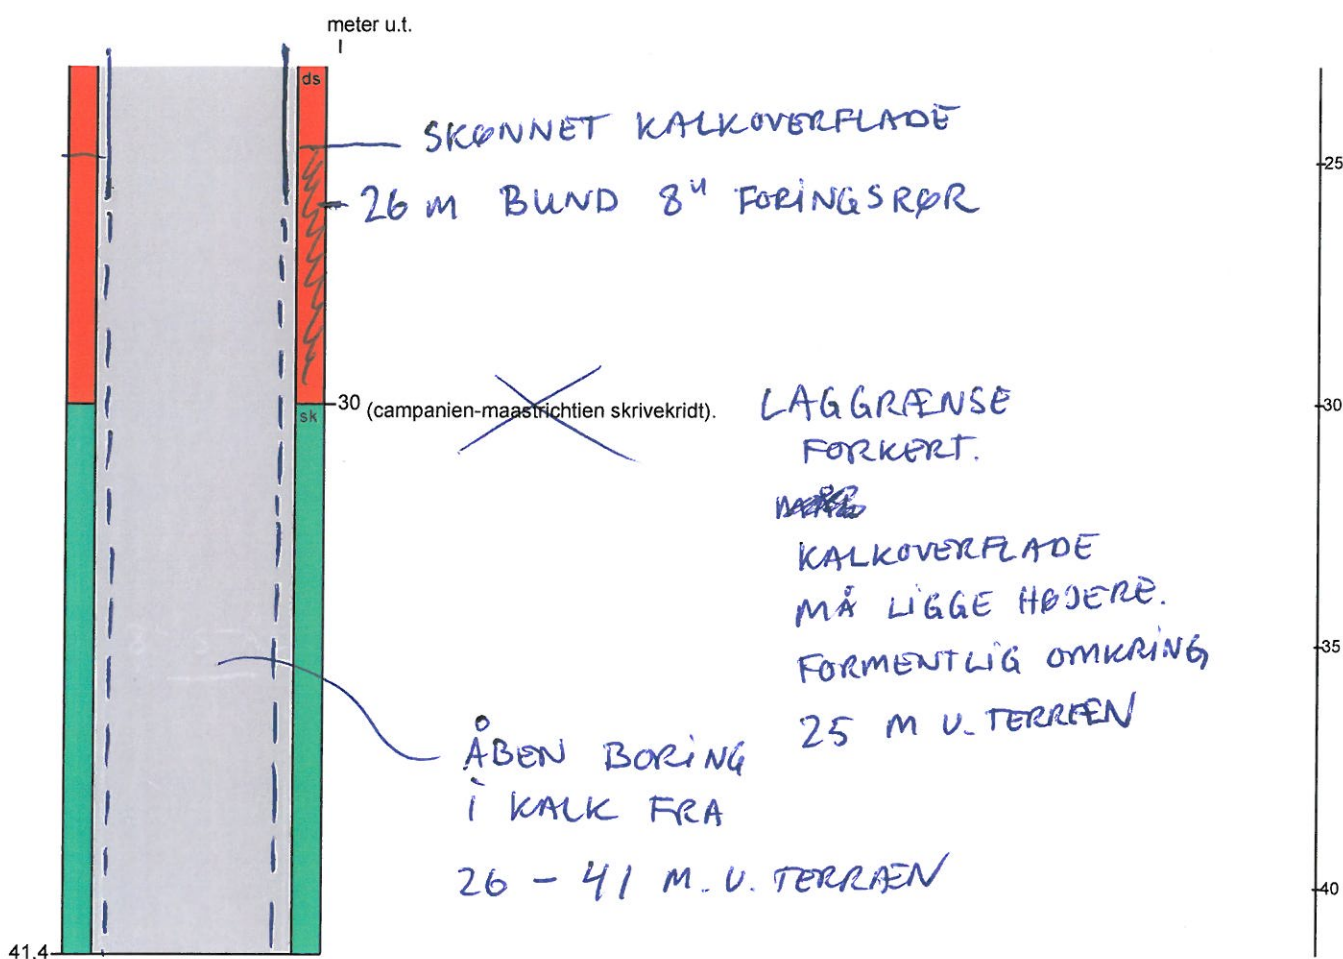 meter u.t.
ds
SKØNNET KALKOVERFLADE
25
26 M BUND 8" FORINGSRØR
30 (campanien-maastrichtien skrivekridt).
sk
LAGGRÆNSE
FORKERT.
30
KALKOVERFLADE
MÅ LIGGE HØJERE.
FORMENTLIG OMKRING
35
25 M U. TERRÆN
ÅBEN BORING
I KALK FRA
26 - 41 M. U. TERRÆN
40
41.4